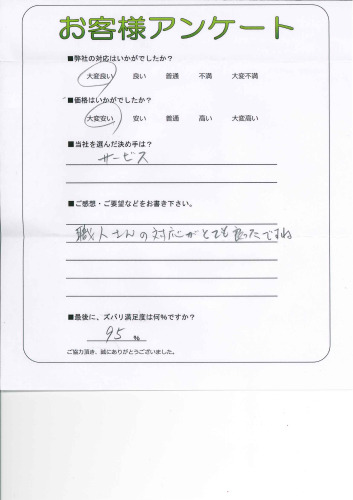 お客様アンケート
■弊社の対応はいかがでしたか?
大変良い 良い 普通 不満 大変不満
■価格はいかがでしたか?
大変安い 安い 普通 高い 大変高い
■当社を選んだ決め手は?
サービス
■ご感想・ご要望などをお書き下さい。
職人さんの対応がとても良かったですね
■最後に、ズバリ満足度は何%ですか?
95 %
ご協力頂き、誠にありがとうございました。